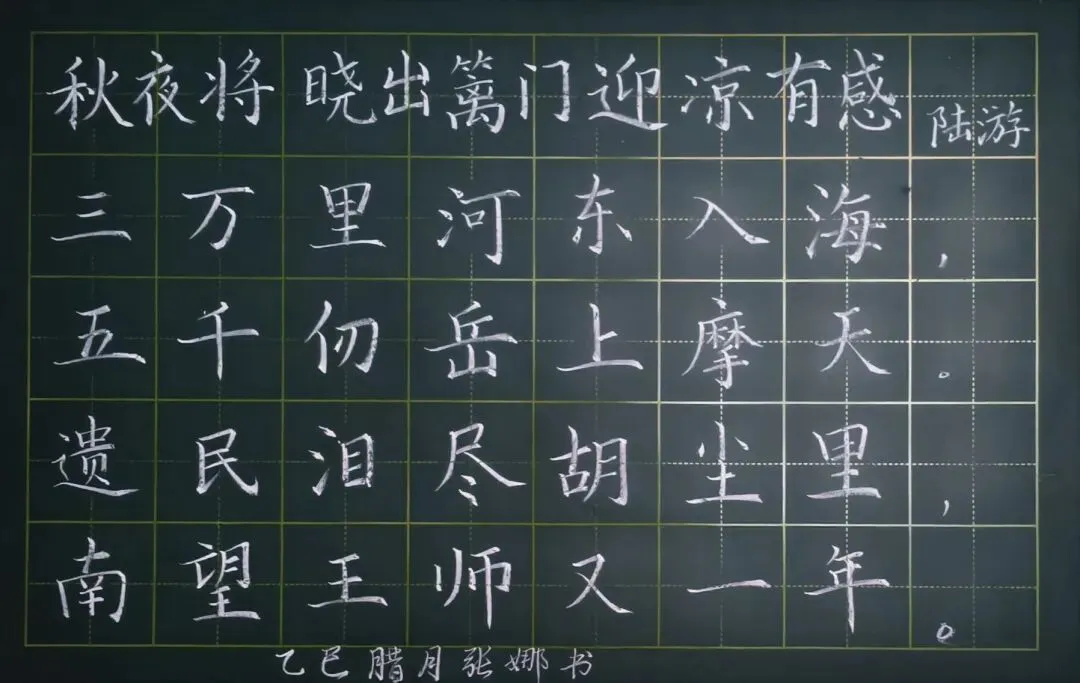 秋夜将晓出篱门迎凉有感 陆游
三万里河东入海，
五千仞岳上摩天。
遗民泪尽胡尘里，
南望王师又一年。
乙巳腊月张娜书